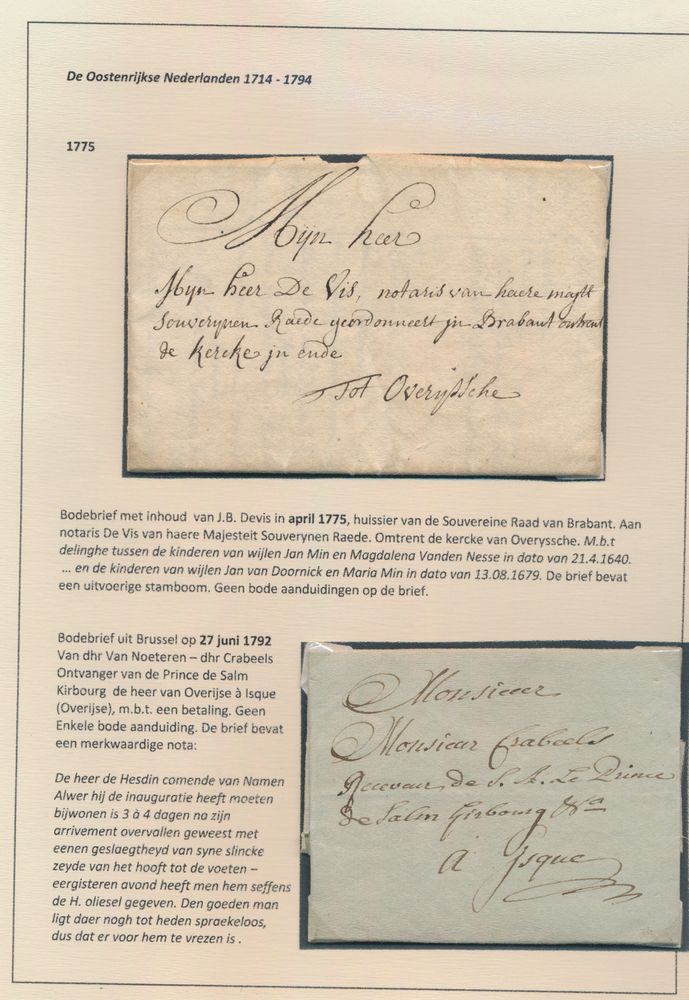 De Oostenrijkse Nederlanden 1714 - 1794
1775
Mijn heer
Mijn heer De Vis, notaris van haere
souverynen Raede geordonneert jn Brabant ontrent
de kercke jn ende
Tot Overijssche
Bodebrief met inhoud van J.B. Devis in april 1775, huissier van de Souvereine Raad van Brabant. Aan
notaris De Vis van haere Majesteit Souverynen Raede. Omtrent de kercke van Overyssche. M.b.t
delinghe tussen de kinderen van wijlen Jan Min en Magdalena Vanden Nesse in dato van 21.4.1640.
... en de kinderen van wijlen Jan van Doornick en Maria Min in dato van 13.08.1679. De brief bevat
een uitvoerige stamboom. Geen bode aanduidingen op de brief.
Bodebrief uit Brussel op 27 juni 1792
Van dhr Van Noeteren – dhr Crabeels
Ontvanger van de Prince de Salm
Kirbourg de heer van Overijse à Isque
(Overijse), m.b.t. een betaling. Geen
Enkele bode aanduiding. De brief bevat
een merkwaardige nota:
De heer de Hesdin comende van Namen
Alwer hij de inauguratie heeft moeten
bijwonen is 3 à 4 dagen na zijn
arrivement overvallen geweest met
eenen geslaegtheyd van syne slincke
zeyde van het hooft tot de voeten –
eergisteren avond heeft men hem seffens
de H. oliesel gegeven. Den goeden man
ligt daer nogh tot heden spraekeloos,
dus dat er voor hem te vrezen is .
Monsieur
Monsieur Crabeels
Receveur de S. A. Le Prince
de Salm Kirbourg &ca
à Isque